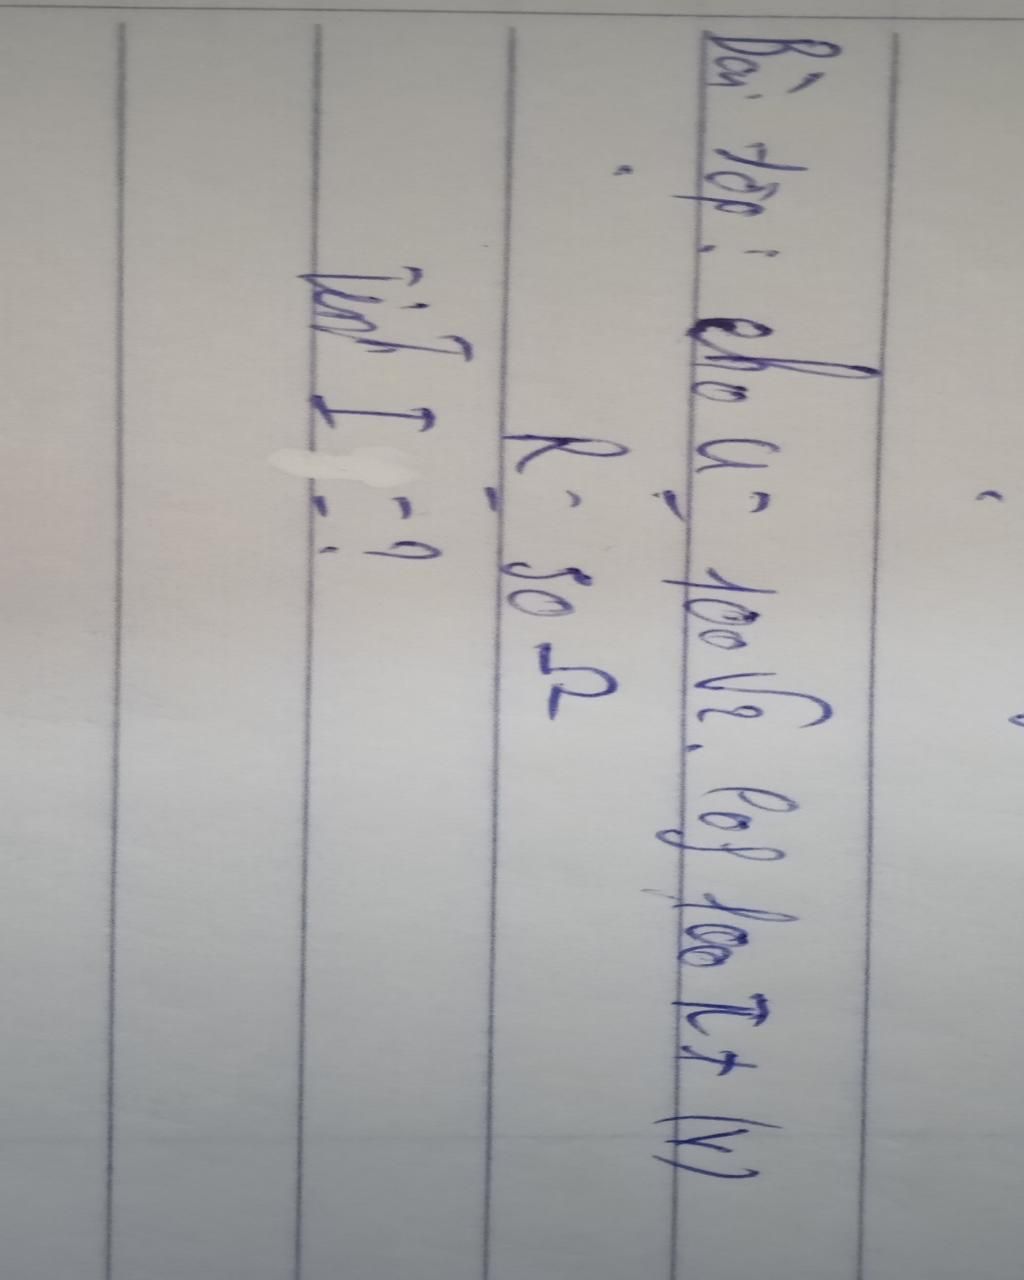 Bài tập: cho u = 100√2. cos 100 πt (V)
R = 50 Ω
Tính I = ?